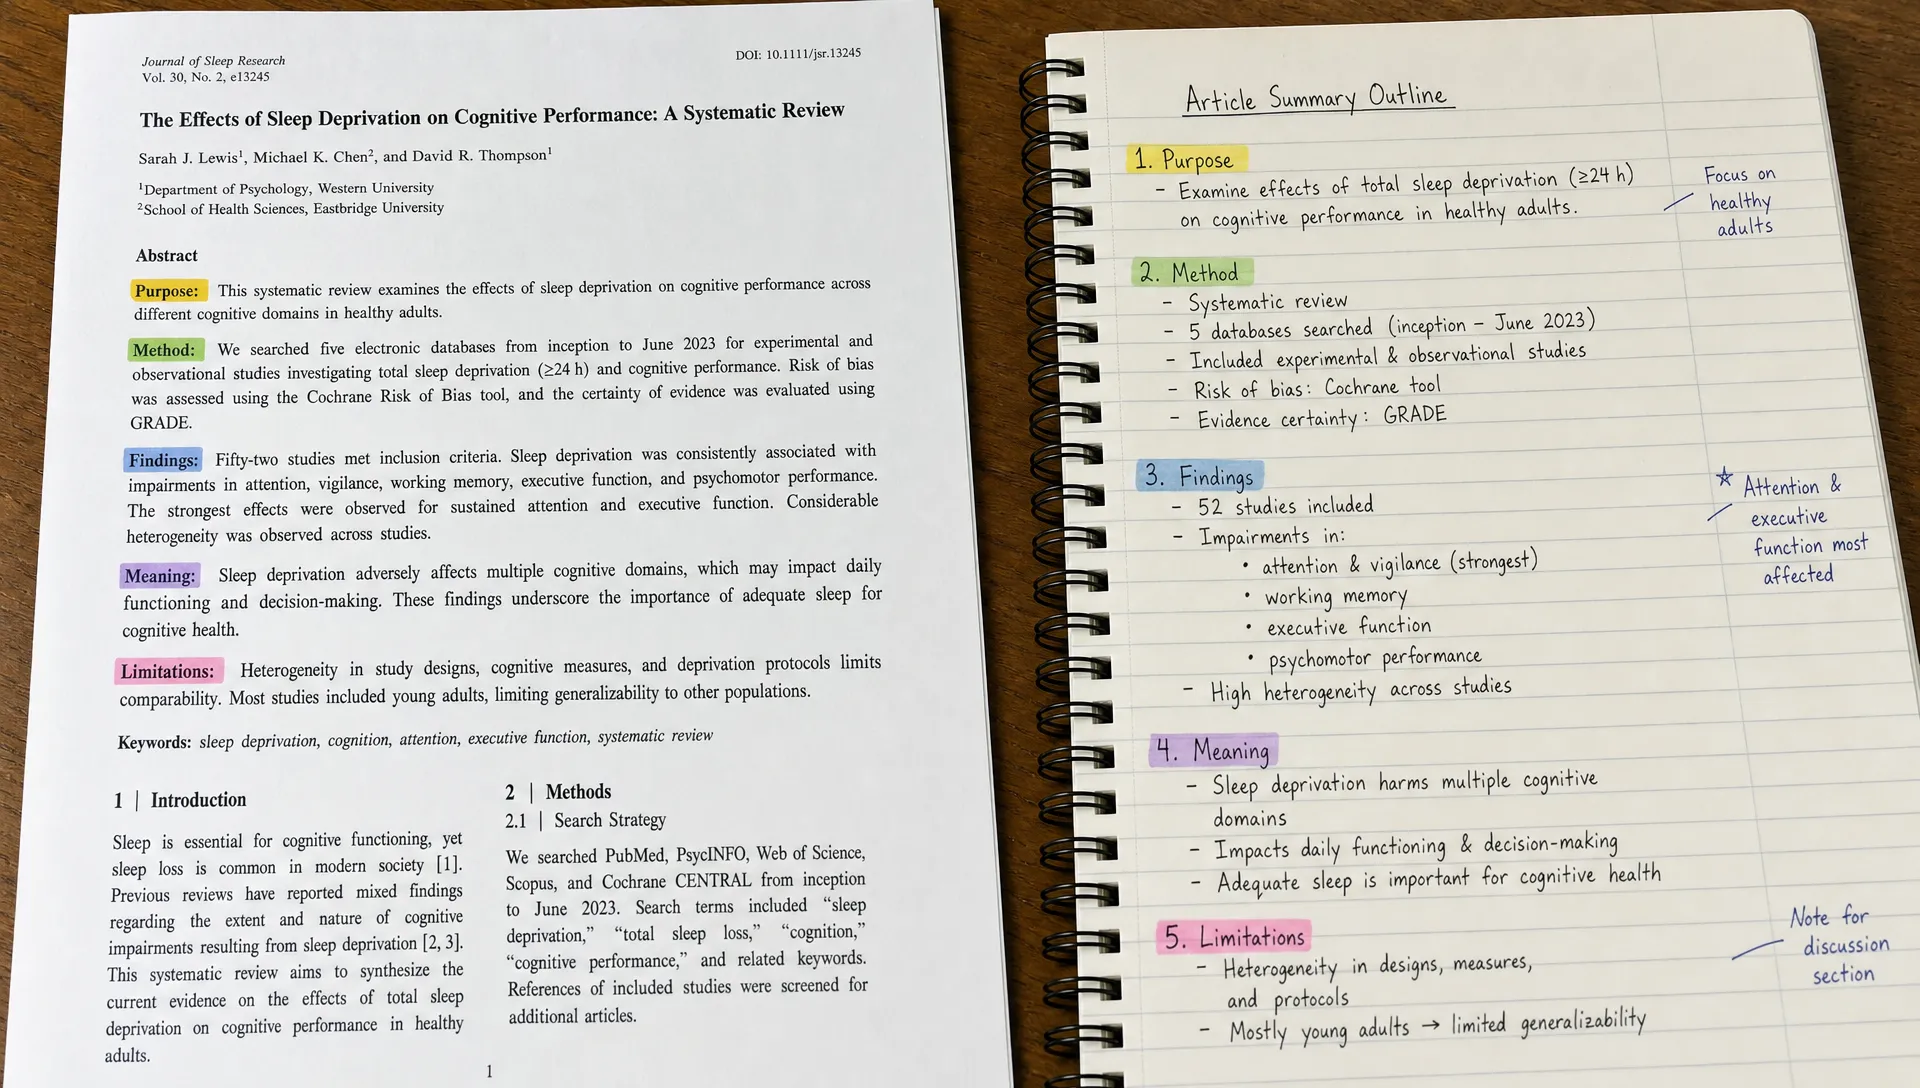 Journal of Sleep Research
Vol. 30, No. 2, e13245
DOI: 10.1111/jsr.13245
The Effects of Sleep Deprivation on Cognitive Performance: A Systematic Review
Sarah J. Lewis¹, Michael K. Chen², and David R. Thompson¹
¹Department of Psychology, Western University
²School of Health Sciences, Eastbridge University
Abstract
Purpose: This systematic review examines the effects of sleep deprivation on cognitive performance across
different cognitive domains in healthy adults.
Method: We searched five electronic databases from inception to June 2023 for experimental and
observational studies investigating total sleep deprivation (≥24 h) and cognitive performance. Risk of bias
was assessed using the Cochrane Risk of Bias tool, and the certainty of evidence was evaluated using
GRADE.
Findings: Fifty-two studies met inclusion criteria. Sleep deprivation was consistently associated with
impairments in attention, vigilance, working memory, executive function, and psychomotor performance.
The strongest effects were observed for sustained attention and executive function. Considerable
heterogeneity was observed across studies.
Meaning: Sleep deprivation adversely affects multiple cognitive domains, which may impact daily
functioning and decision-making. These findings underscore the importance of adequate sleep for
cognitive health.
Limitations: Heterogeneity in study designs, cognitive measures, and deprivation protocols limits
comparability. Most studies included young adults, limiting generalizability to other populations.
Keywords: sleep deprivation, cognition, attention, executive function, systematic review
1 | Introduction
Sleep is essential for cognitive functioning, yet
sleep loss is common in modern society [1].
Previous reviews have reported mixed findings
regarding the extent and nature of cognitive
impairments resulting from sleep deprivation [2, 3].
This systematic review aims to synthesize the
current evidence on the effects of total sleep
deprivation on cognitive performance in healthy
adults.
2 | Methods
2.1 | Search Strategy
We searched PubMed, PsycINFO, Web of Science,
Scopus, and Cochrane CENTRAL from inception
to June 2023. Search terms included “sleep
deprivation,” “total sleep loss,” “cognition,”
“cognitive performance,” and related keywords.
References of included studies were screened for
additional articles.
1
Article Summary Outline
1. Purpose
- Examine effects of total sleep deprivation (≥24 h)
on cognitive performance in healthy adults.
Focus on
healthy
adults
2. Method
- Systematic review
- 5 databases searched (inception – June 2023)
- Included experimental & observational studies
- Risk of bias: Cochrane tool
- Evidence certainty: GRADE
3. Findings
- 52 studies included
- Impairments in:
• attention & vigilance (strongest)
• working memory
• executive function
• psychomotor performance
- High heterogeneity across studies
☆ Attention &
executive
function most
affected
4. Meaning
- Sleep deprivation harms multiple cognitive
domains
- Impacts daily functioning & decision-making
- Adequate sleep is important for cognitive health
5. Limitations
- Heterogeneity in designs, measures,
and protocols
- Mostly young adults → limited generalizability
Note for
discussion
section